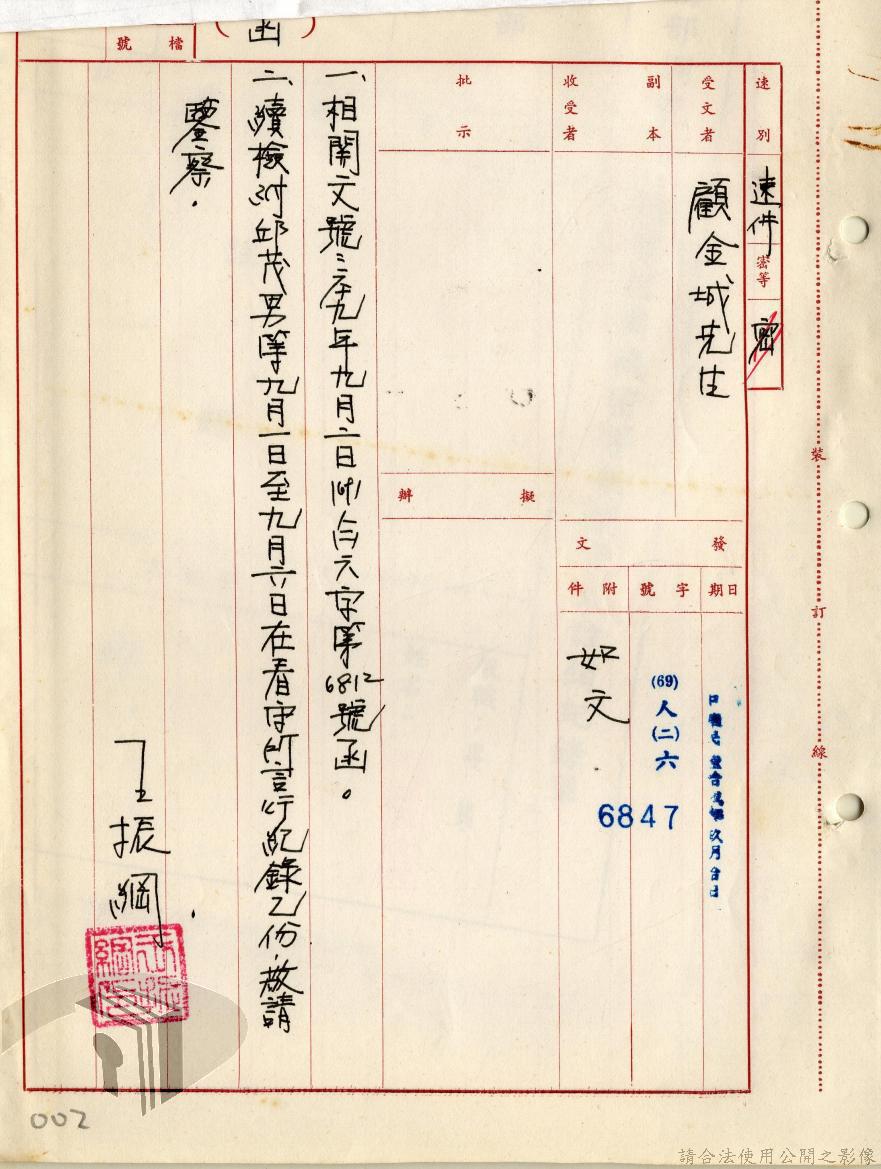 檔號
（函）
速別
速件
密等
密
受文者
顧金城先生
副本收受者
批示
擬辦
發文
日期
字號
(69)人(二)六
6847
附件
如文
一、相關文號：六十九年九月二日(69)人六字第6812號函。
二、續檢附邱茂男等九月一日至九月六日在看守所言行紀錄乙份，敬請
鑒察．
王振綱
裝
訂
線
002
請合法使用公開之影像